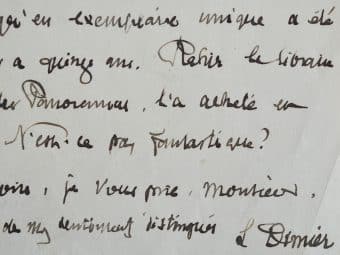 qu'en exemplaire unique a été
a quinze ans. Rahir le libraire
des Panoramas, l'a acheté en
N'est-ce pas fantastique?
voire, je vous prie, monsieur,
de mes sentiments distingués
L Dimier